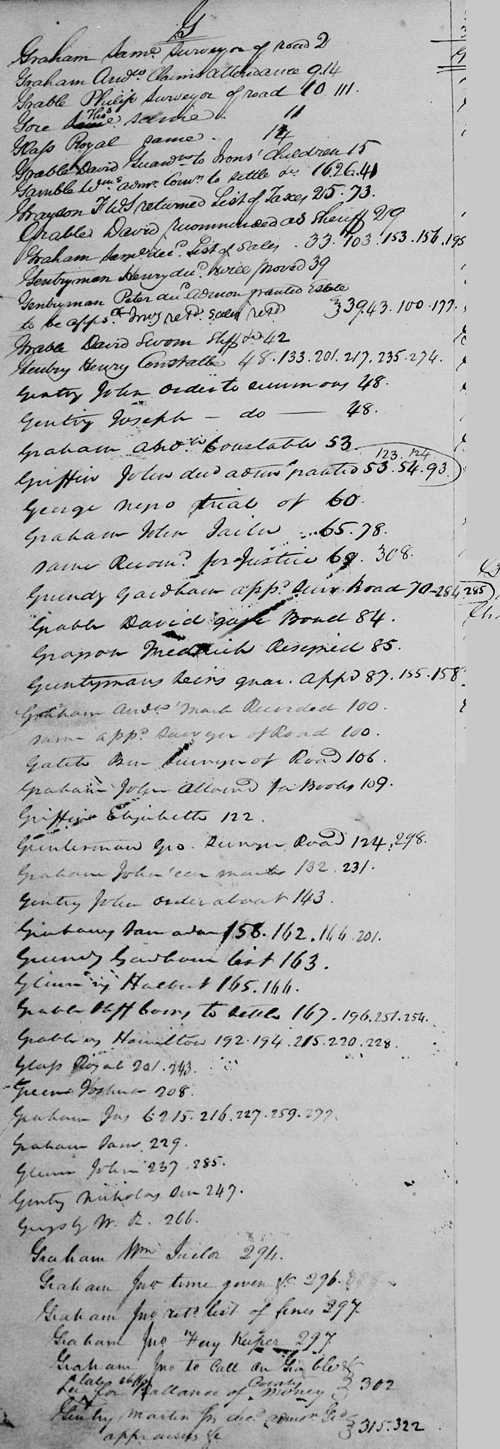 G
Graham Saml Surveyor of road 2
Graham Andw Claims attendance 9.14
Grable Philip Surveyor of road 10 111.
Gore Thos same . 11
Glass Royal same . 14
Grable David Guardn to Irons' Children 15
Gamble Wm admr Comrs to settle &c 16 26.41
Grayson F W S returned List of Taxes 25.73.
Grable David recommended as Sheriff 29
Graham Saml decd List of Sales . 33. 103. 153. 156. 195
Gentryman Henry decd proved 39
Gentryman Peter decd admon granted Estate
to be appsd Invy retd Sales retd } 39.43. 100. 177.
Grable David Sworn Shff &c 42
Gentry Henry Constable 48. 133. 201. 217. 235. 274.
Gentry John order to summons 48.
Gentry Joseph — do — 48.
Graham Andw Constable 53.
Griffin John decd admn granted 53. 54. 93. 123. 124
George negro trial of 60.
Graham John Jailor 65. 78.
same Recomd for Justice 69. 308.
Grundy Gardham appd Surv Road 70-284 285
Grable David gave Bond 84.
Grayson Fredrick Resigned 85.
Guntymans heirs guar. appd 87. 155. 158
Graham Andw Mark Recorded 100.
same appd Surveyor of Road 100.
Gates Ben Surveyor of Road 106.
Graham John Allowed for Books 109.
Griffin Elizabeth 122.
Gunterman Geo. Survyr Road 124. 298.
Graham John ear marks 132. 231.
Gentry John order about 143.
Graham Sam adm 158. 162. 164. 201.
Grundy Gardham list 163.
Glenn vs Halbert 165. 166.
Grable Shff Coms to Settle 167. 196. 251. 254.
Grable vs Hamilton 192. 194. 215. 220. 228.
Glass Royal 201. 243.
Green Joshua 208.
Graham Jno C 215. 216. 227. 259. 277.
Graham Saml 229.
Glenn John 237. 285.
Gentry Nicholas Sen 247.
W. R. 266.
Graham Wm Tailor 294.
Graham Jno time given &c 296.
Graham Jno retd list of fines 297.
Graham Jno Fery Keeper 297
Graham Jno to Call on Grables
late shff for Ballance of County Money } 302
Gentry Martin Jr decd admn Gtd
appraisers &c } 315.322